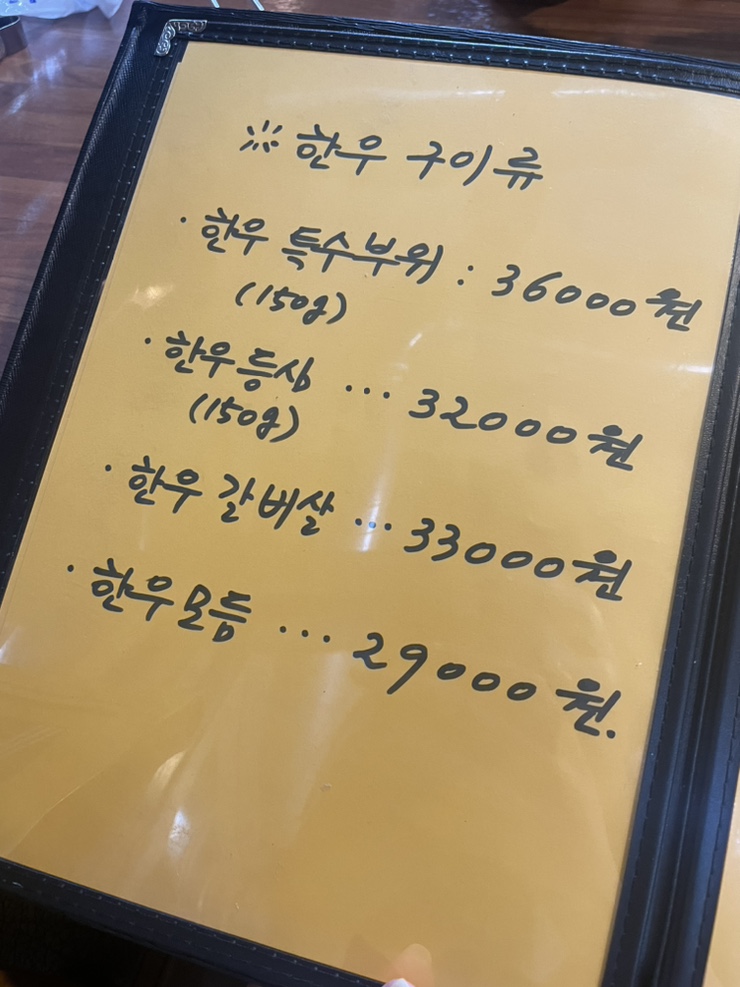 ※ 한우 구이류
· 한우 특수부위 : 36000원
(150g)
· 한우등심 ... 32000원
(150g)
· 한우 갈비살 ... 33000원
· 한우모듬 ... 29000원.